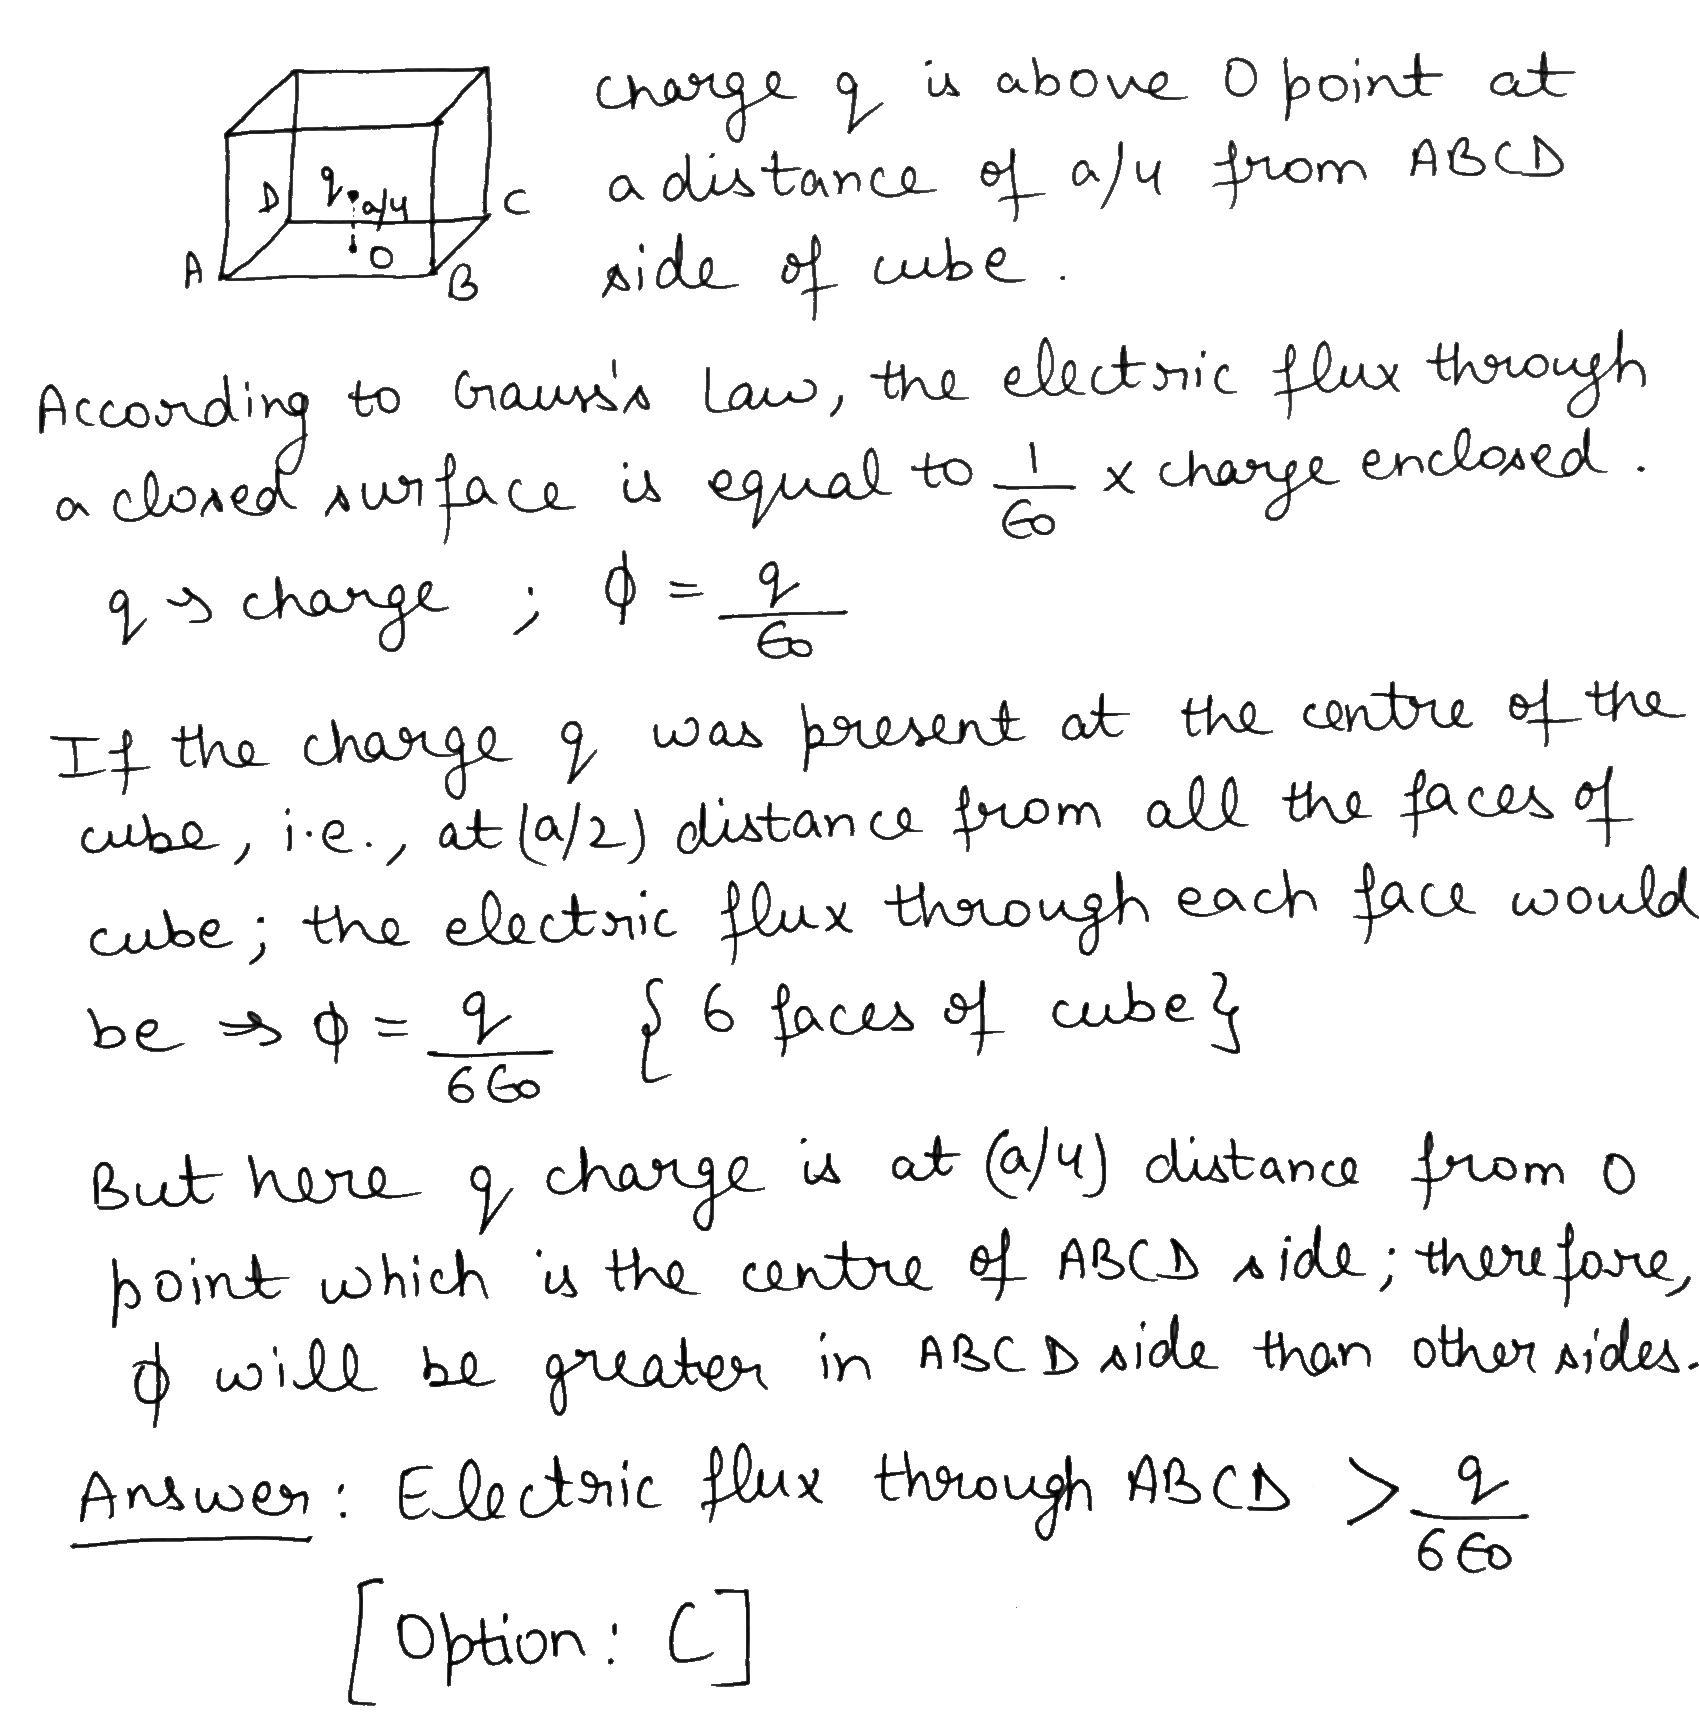 charge q is above O point at
a distance of a/4 from ABCD
side of cube.
D q a/4 C
A O B
According to Gauss's Law, the electric flux through
a closed surface is equal to 1/ϵ0 x charge enclosed.
q → charge ; ϕ = q/ϵ0
If the charge q was present at the centre of the
cube, i.e., at (a/2) distance from all the faces of
cube; the electric flux through each face would
be ⇒ ϕ = q/6ϵ0 { 6 faces of cube}
But here q charge is at (a/4) distance from O
point which is the centre of ABCD side; therefore,
ϕ will be greater in ABCD side than other sides.
Answer: Electric flux through ABCD > q/6ϵ0
[Option: C]